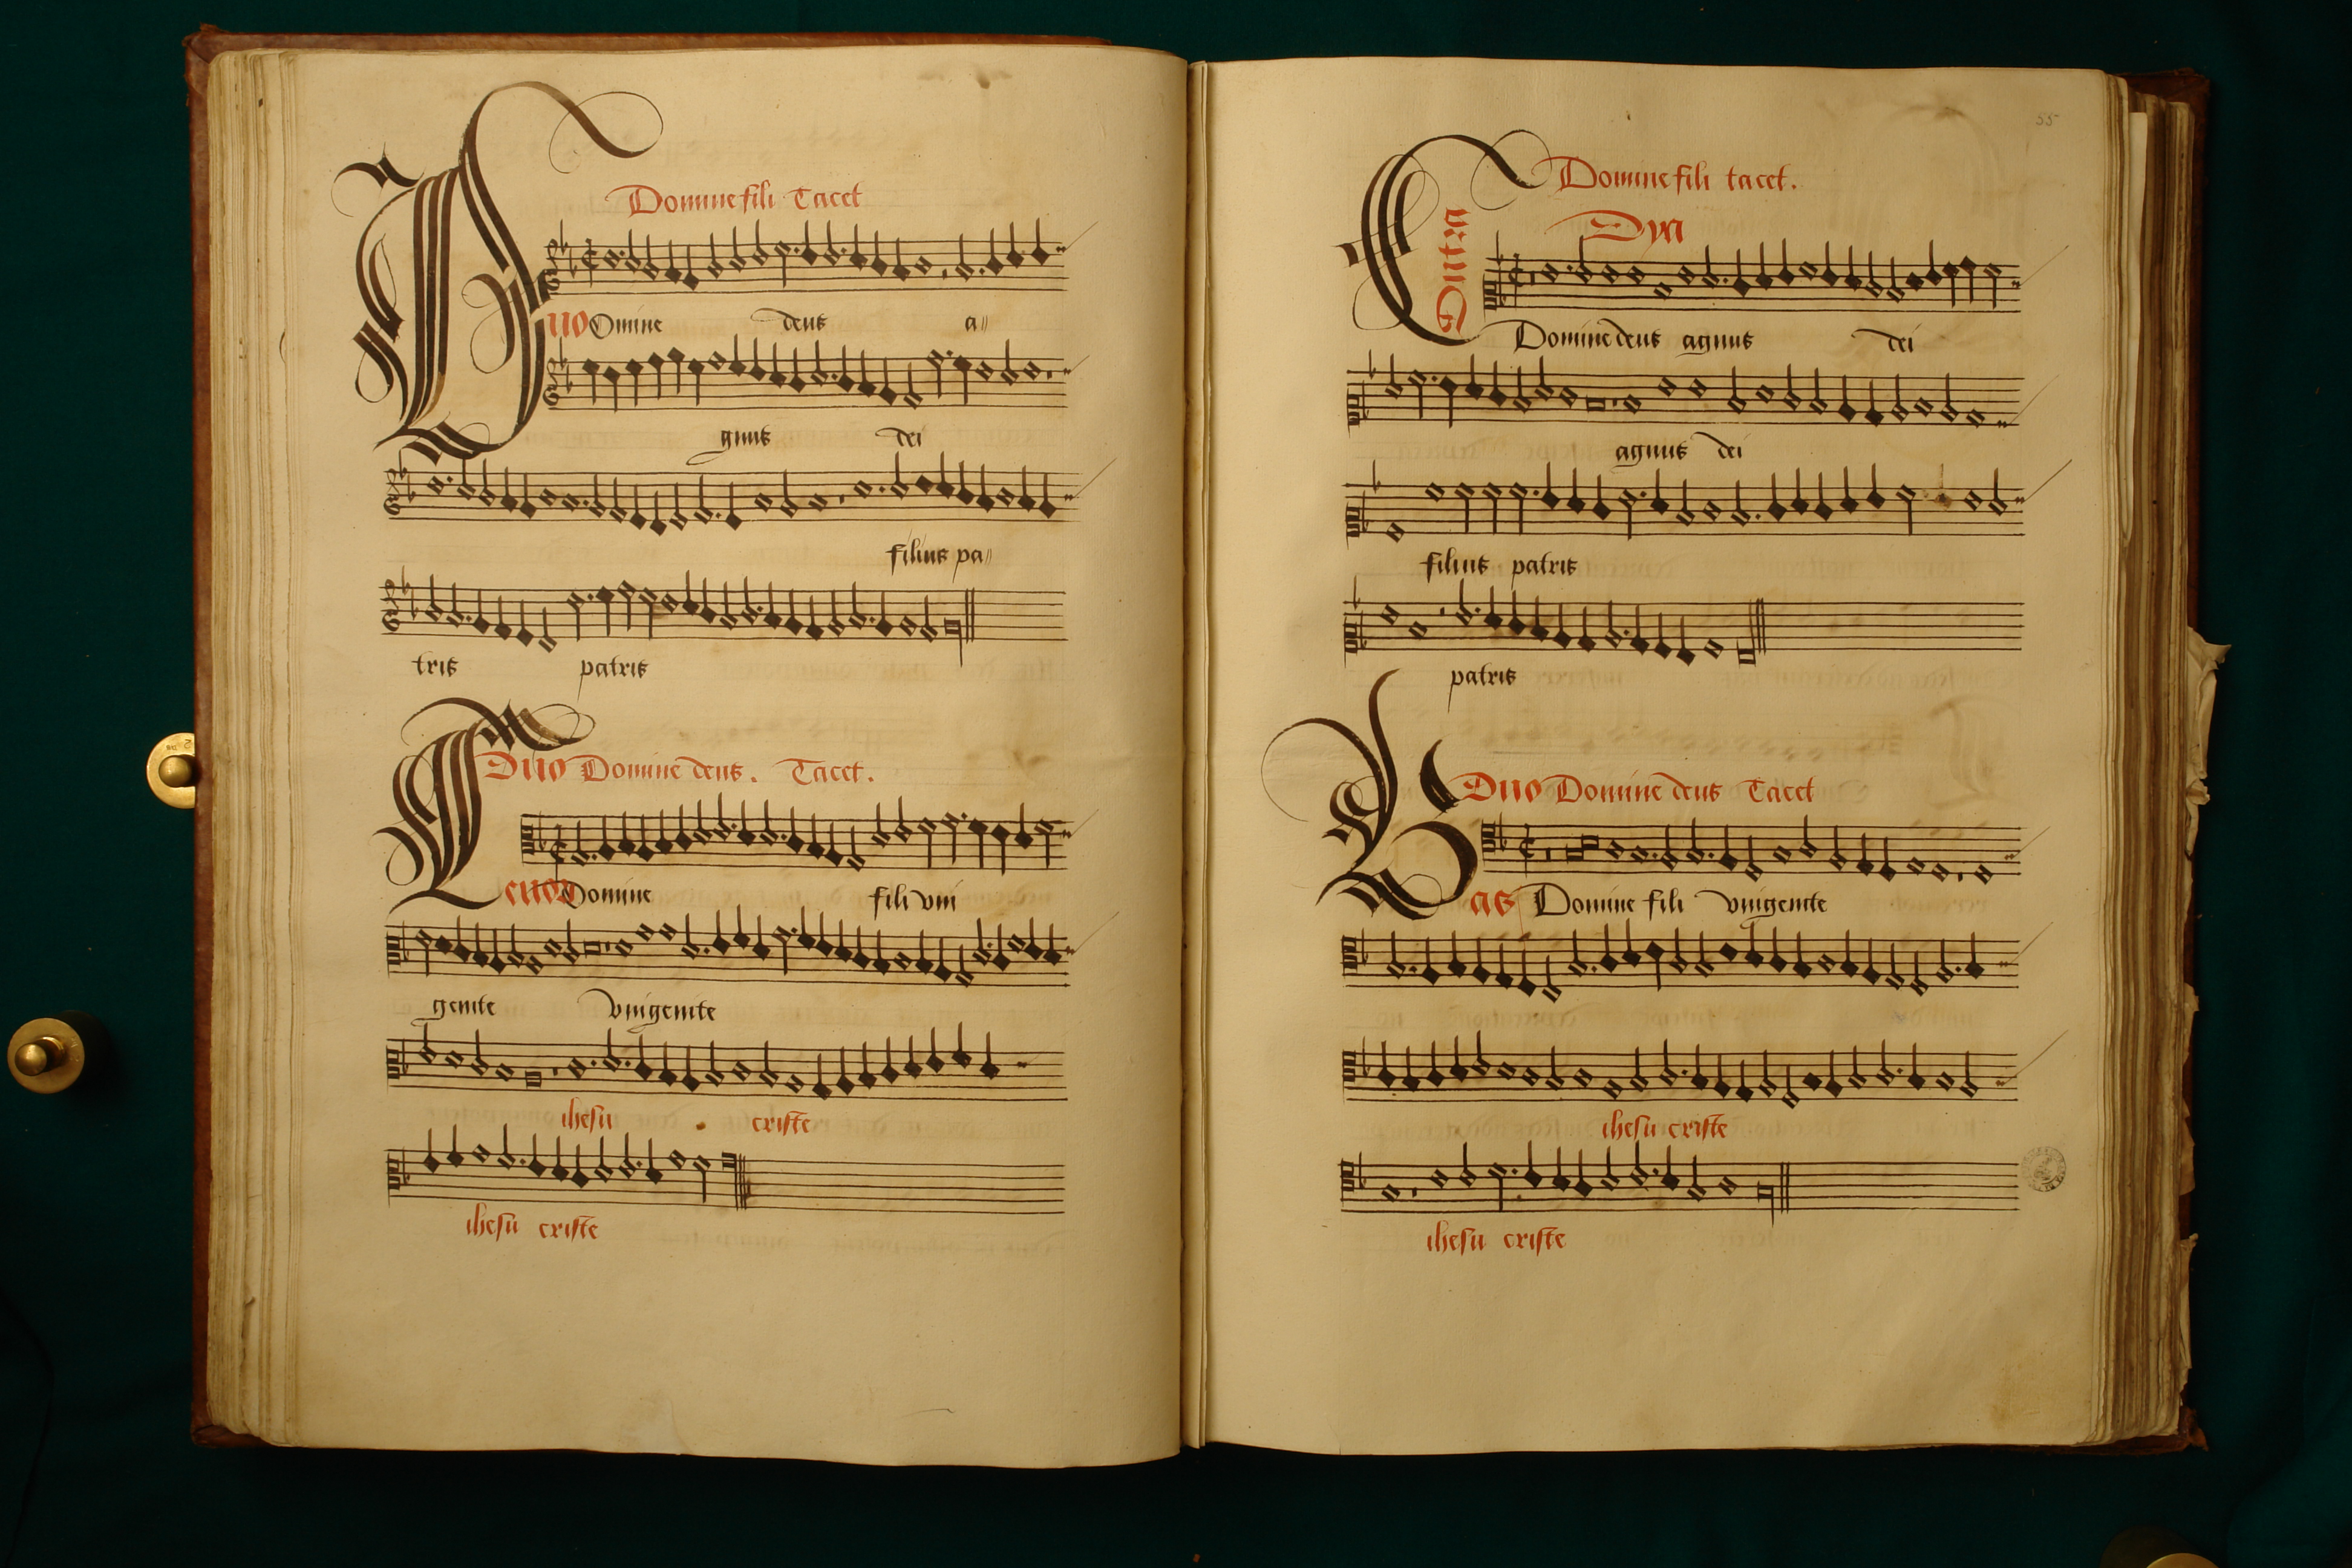 Domine fili Tacet
Duo Omine deus a//
gnus dei
filius pa//
tris patris
Duo Domine deus. Tacet.
Tenor Domine fili vni
genite vnigenite
ihesu criste
ihesu criste
55
Domine fili tacet.
Contra
Domine deus agnus dei
agnus dei
filius patris
patris
Duo Domine deus Tacet
Bas Domine fili vnigenite
ihesu criste
ihesu criste